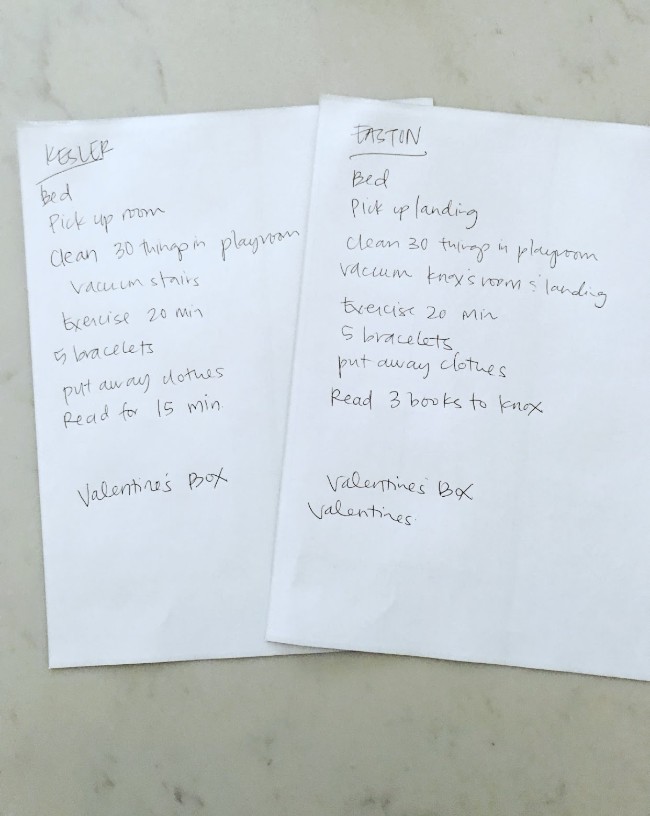 KESLER
Bed
Pick up room
Clean 30 things in playroom
Vacuum stairs
Exercise 20 min
5 bracelets
put away clothes
Read for 15 min
Valentine's Box
EASTON
Bed
Pick up landing
Clean 30 things in playroom
Vacuum Knox's room & landing
Exercise 20 min
5 bracelets
put away clothes
Read 3 books to Knox
Valentines Box
Valentines